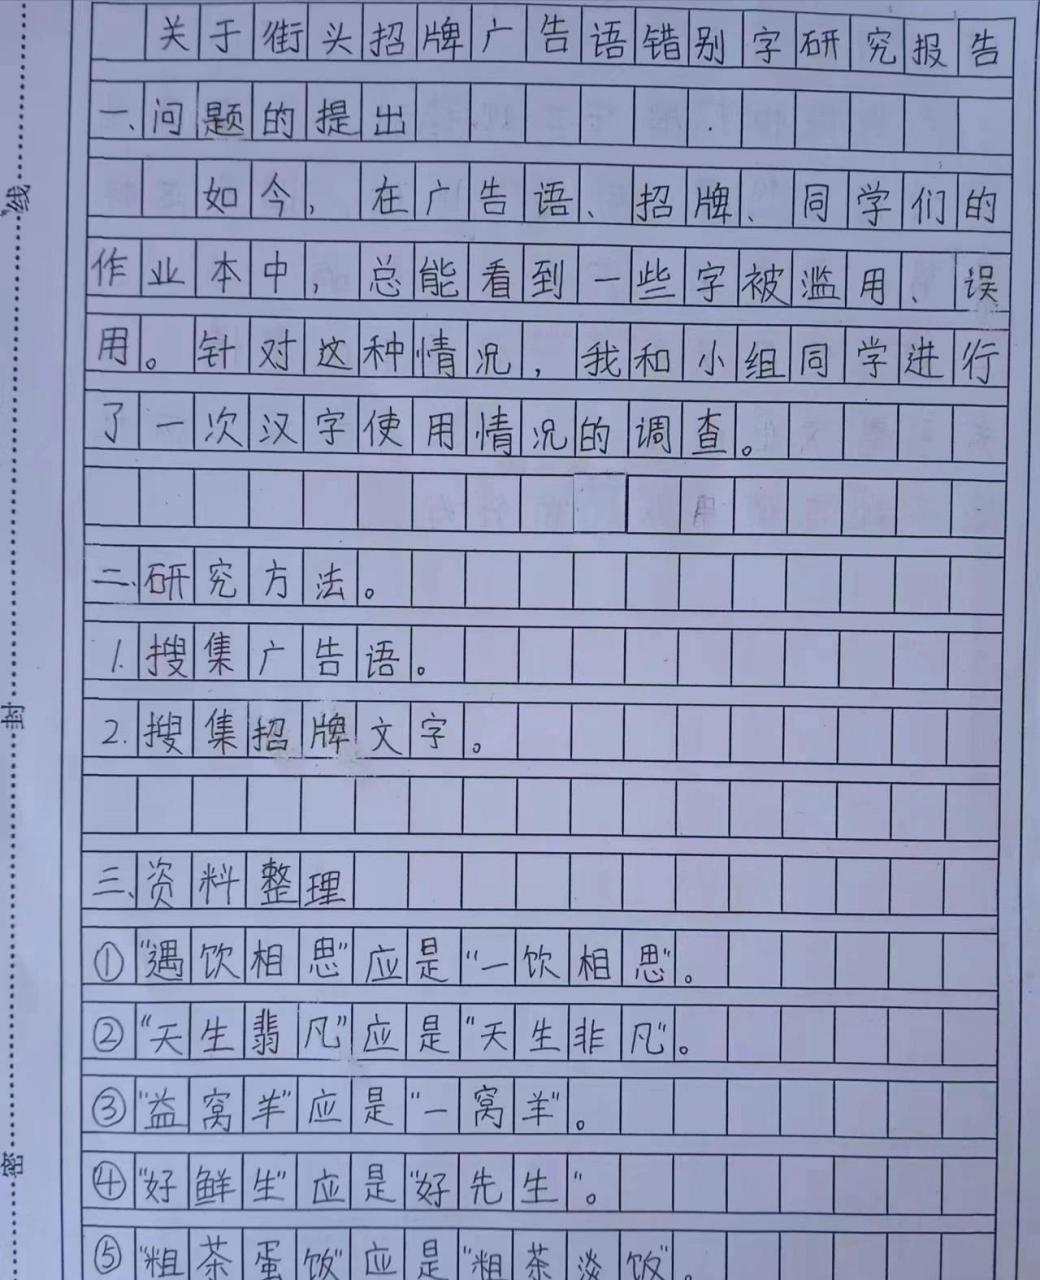 关于街头招牌广告语错别字研究报告
一、问题的提出
如今，在广告语、招牌、同学们的
作业本中，总能看到一些字被滥用、误
用。针对这种情况，我和小组同学进行
了一次汉字使用情况的调查。
用
二、研究方法。
1.搜集广告语。
2.搜集招牌文字。
三、资料整理
①“遇饮相思”应是“一饮相思”。
②“天生翡凡”应是“天生非凡”。
③“益窝羊”应是“一窝羊”。
④“好鲜生”应是“好先生”。
⑤“粗茶蛋饭”应是“粗茶淡饭”。
线
封
密